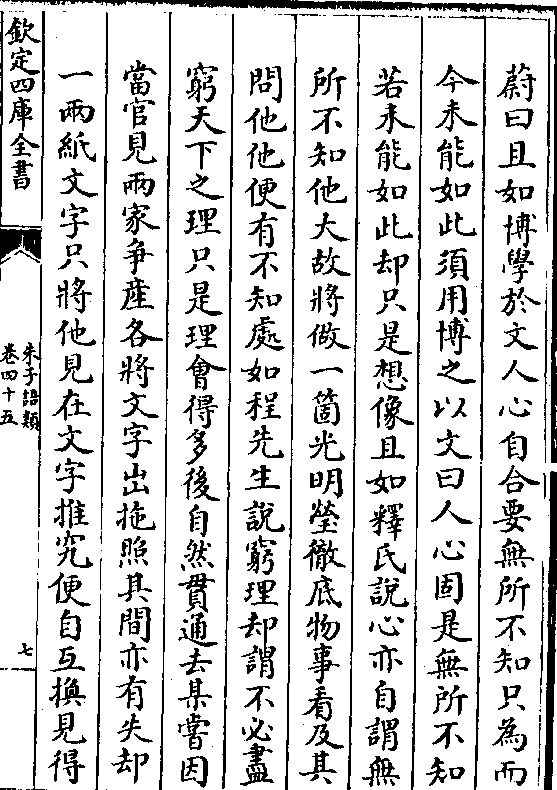 蔚曰且如博學於文人心自合要無所不知只為而
今未能如此須用博之以文曰人心固是無所不知
若未能如此却只是想像且如釋氏說心亦自謂無
所不知他大故將做一箇光明瑩徹底物事看及其
問他他便有不知處如程先生說窮理却謂不必盡
窮天下之理只是理會得多後自然貫通去某嘗因
當官見兩家爭産各將文字出拖照其間亦有失却
一兩紙文字只將他見在文字推究便自互換見得
欽定四庫全書
朱子語類
卷四十五
七